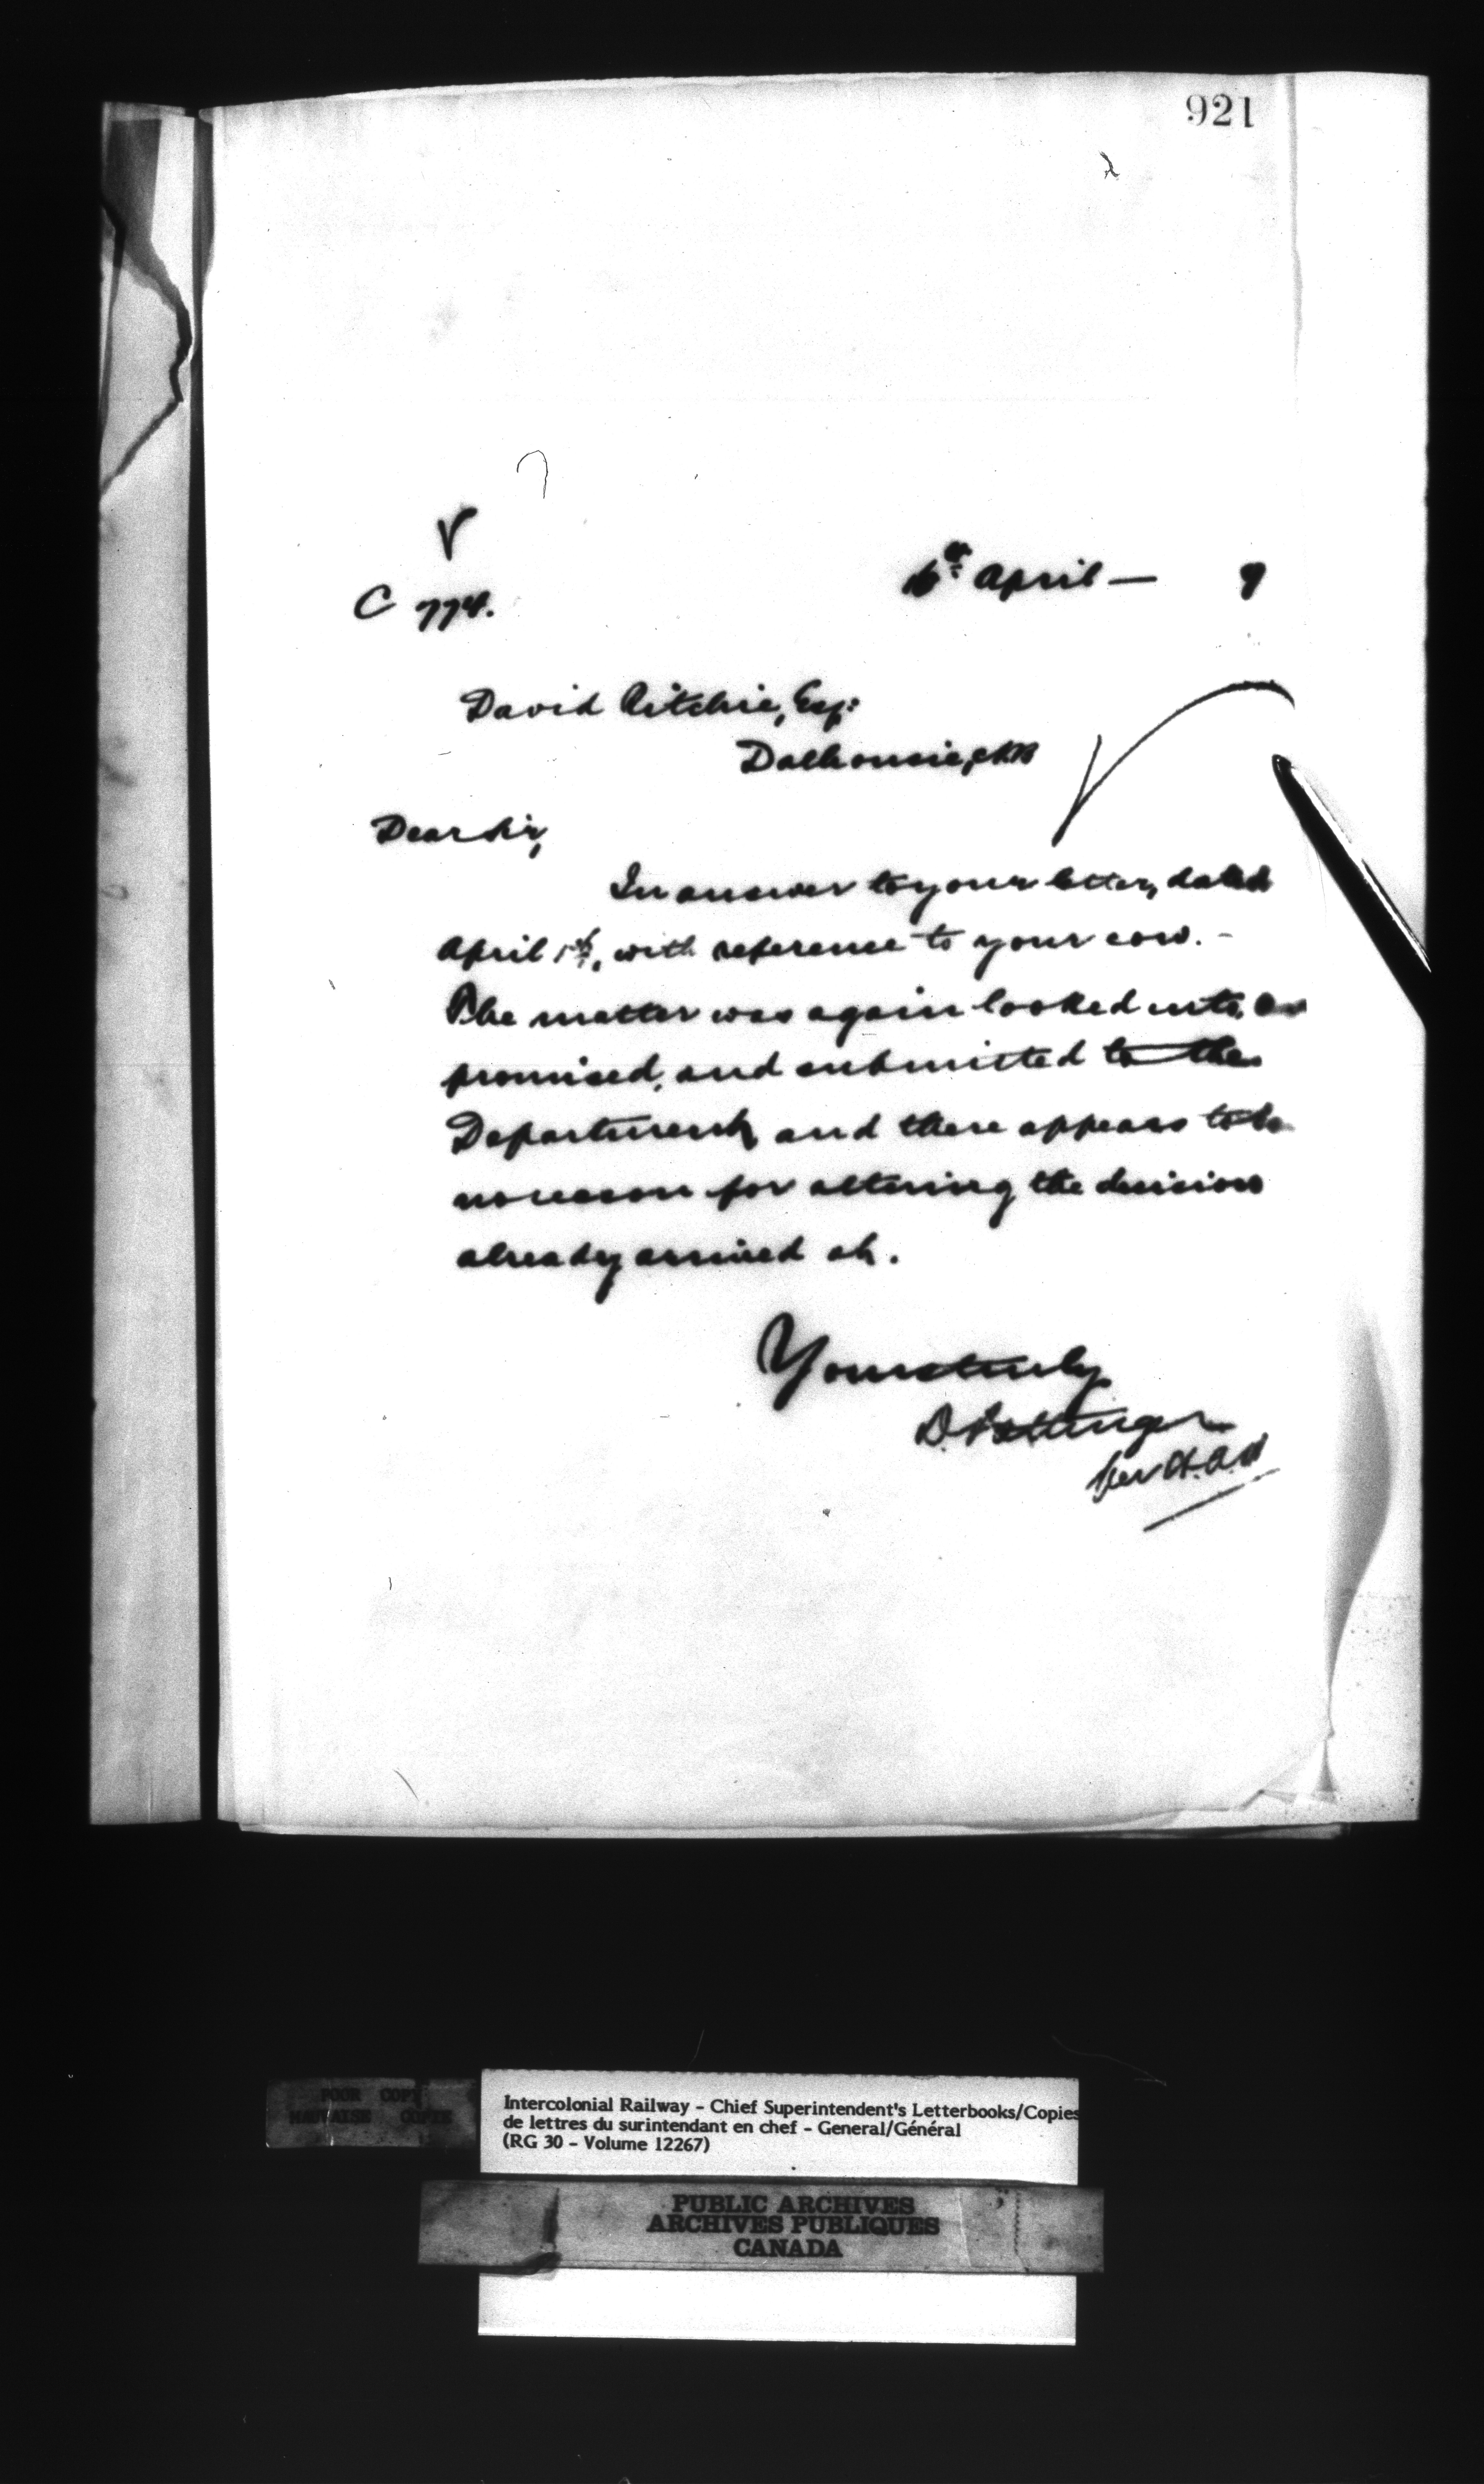 921
C 774.
April — 9
David Ritchie, Esq:
Dalhousie, N.B
Dear Sir,
In answer to your letter, dated
April 1st, with reference to your cow. -
The matter was again looked into, as
promised, and submitted to the
Department, and there appears to be
no reason for altering the decision
already arrived at.
Yours truly
D. Pottinger
per H.A.
POOR COPY
MAUVAISE COPIE
Intercolonial Railway - Chief Superintendent's Letterbooks/Copies
de lettres du surintendant en chef - General/Général
(RG 30 - Volume 12267)
PUBLIC ARCHIVES
ARCHIVES PUBLIQUES
CANADA